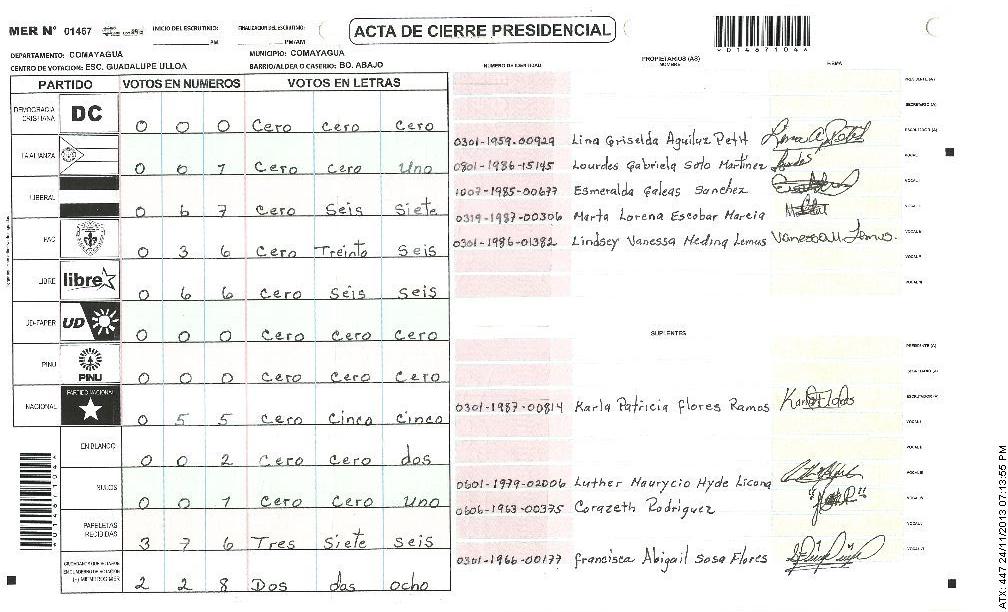 MER Nº 01467 INICIO DEL ESCRUTINIO: FINALIZACION DEL ESCRUTINIO: ACTA DE CIERRE PRESIDENCIAL
PM PM/AM
V01467104A
DEPARTAMENTO: COMAYAGUA MUNICIPIO: COMAYAGUA
CENTRO DE VOTACION: ESC. GUADALUPE ULLOA BARRIO/ALDEA O CASERIO: BO. ABAJO
NUMERO DE IDENTIDAD PROPIETARIOS (AS) NOMBRE FIRMA
PARTIDO VOTOS EN NUMEROS VOTOS EN LETRAS
DEMOCRACIA CRISTIANA DC 0 0 0 Cero cero cero
LA ALIANZA 0 0 1 Cero Cero Uno
LIBERAL 0 6 7 Cero Seis Siete
PAC 0 3 6 Cero Treinta Seis
LIBRE libre 0 6 6 Cero Seis Seis
UD-FAPER UD 0 0 0 Cero Cero Cero
PINU PINU 0 0 0 Cero Cero Cero
NACIONAL PARTIDO NACIONAL 0 5 5 Cero Cinco Cinco
EN BLANCO 0 0 2 Cero Cero dos
NULOS 0 0 1 Cero Cero Uno
PAPELETAS RECIBIDAS 3 7 6 Tres Siete seis
2 2 8 Dos dos ocho
PRESIDENTE (A)
SECRETARIO (A)
0301-1959-00929 Lina Griselda Aguiluz Petit ESCRUTADOR (A)
0801-1986-15145 Lourdes Gabriela Soto Martinez
1007-1985-00677 Esmeralda Galeas Sanchez
0319-1987-00306 Marta Lorena Escobar Mareia
0301-1986-01382 Lindsey Vanessa Medina Lemus Vanessa M Lemus.
SUPLENTES
PRESIDENTE (A)
SECRETARIO (A)
0301-1987-00814 Karla Patricia flores Ramos ESCRUTADOR (A)
0601-1979-02006 Luther Maurycio Hyde Licona
0606-1963-00375 Corazeth Rodriguez
0301-1966-00177 francisca Abigail Sosa Flores
ATX: 447 24/11/2013 07:13:55 PM